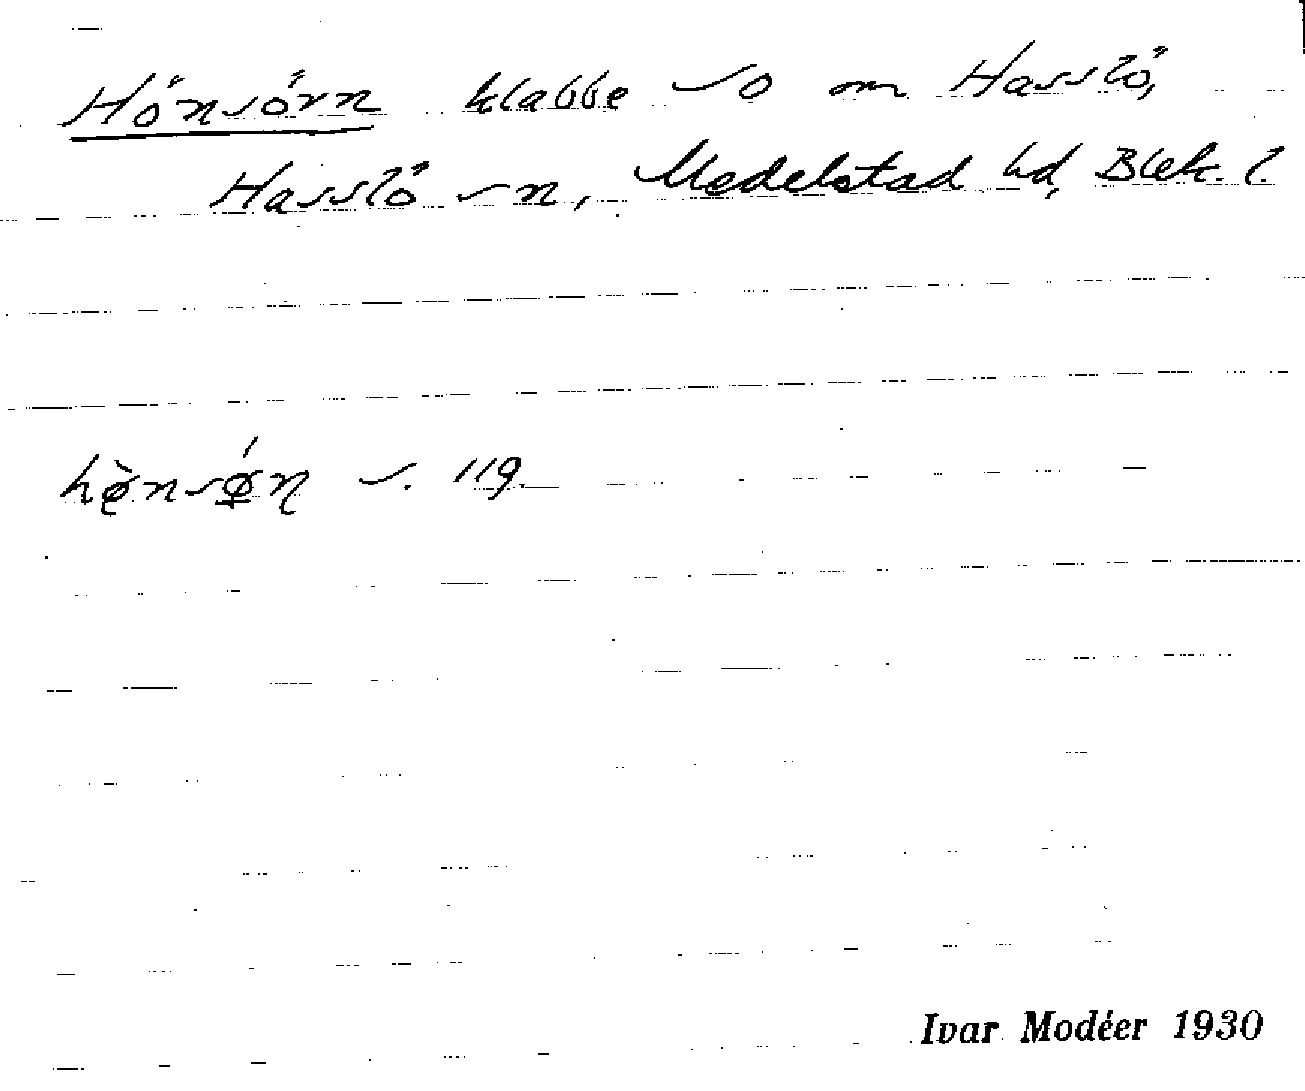 Hönsörn klabbe SO om Hasslö,
Hasslö sn, Medelstad hd, Blek. l.
hø̀nsǿn s. 119.
Ivar Modéer 1930